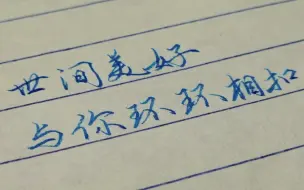 世间美好
与你环环相扣